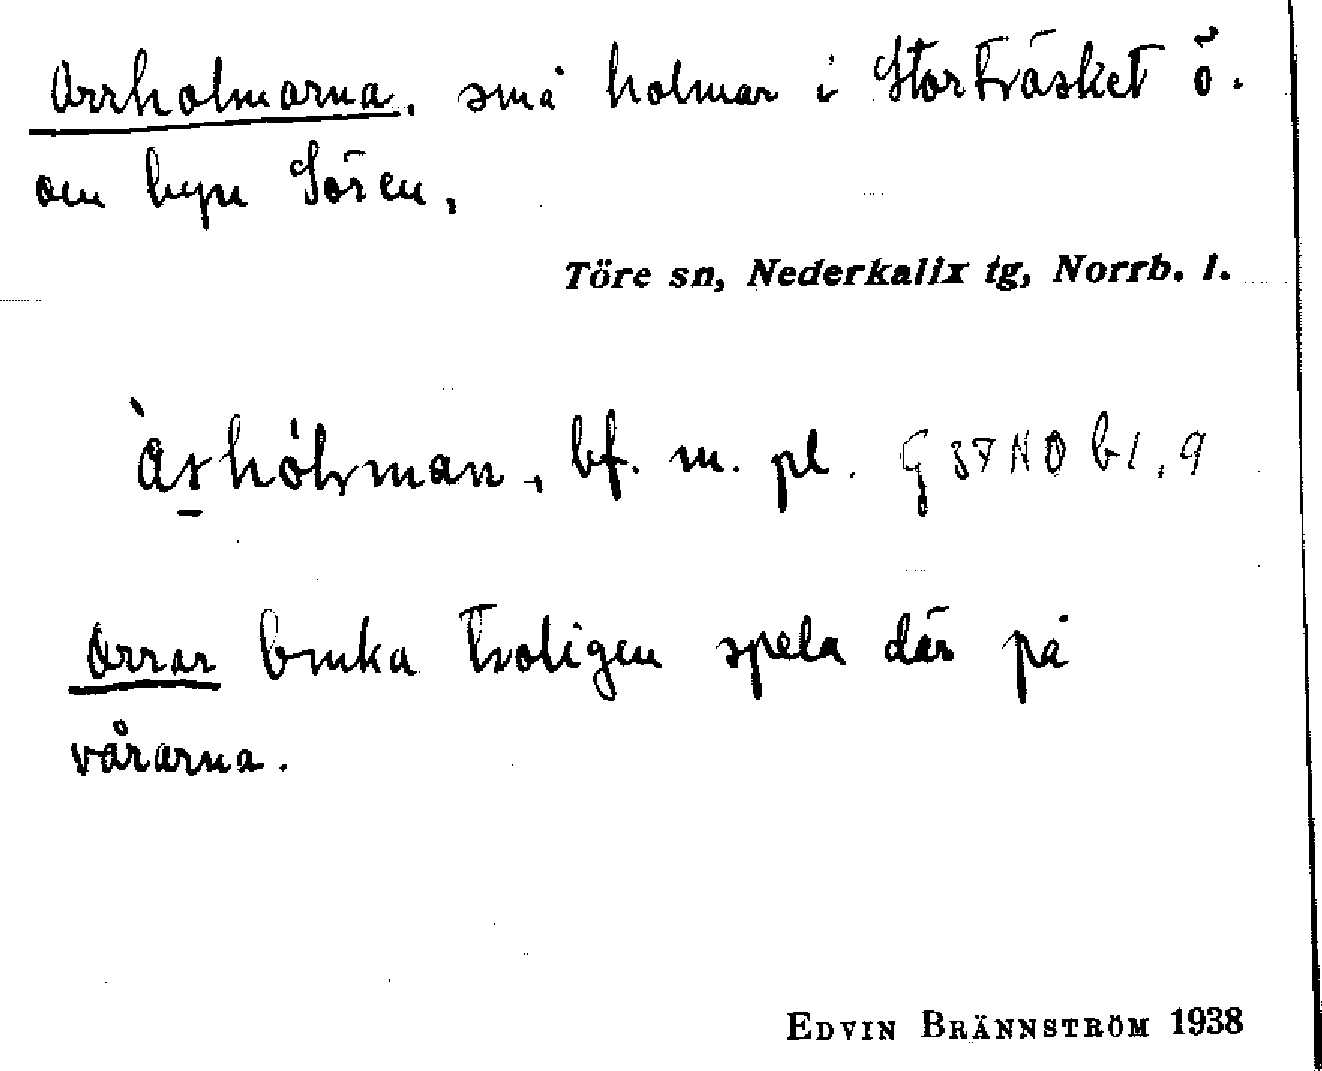 Orrholmarna, små holmar i Storträsket ö.
om byn Sören,
Töre sn, Nederkalix tg, Norrb. l.
bf. m. pl. G 37 NO bl, 9
Orrar bruka troligen spela där på
vårarna.
EDVIN BRÄNNSTRÖM 1938